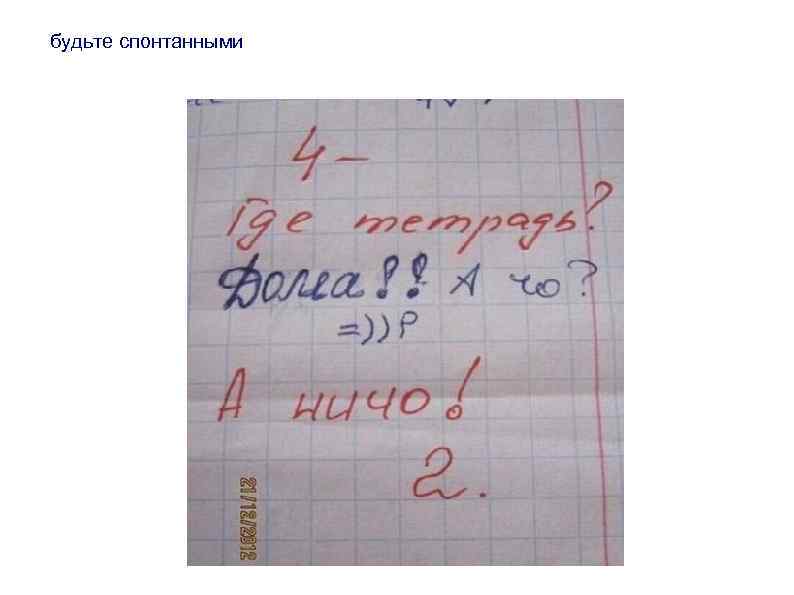 будьте спонтанными
4 –
Где тетрадь?
Дома!! А чо?
=))P
А ничо!
2.
21/12/2012